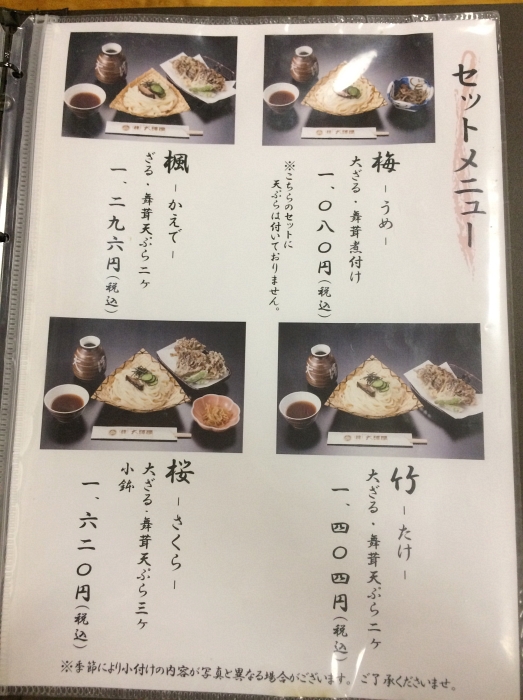 セットメニュー
梅 ーうめー
大ざる・舞茸煮付け
一、〇八〇円(税込)
※こちらのセットに
天ぷらは付いておりません。
楓 ーかえでー
ざる・舞茸天ぷら二ヶ
一、二九六円(税込)
竹 ーたけー
大ざる・舞茸天ぷら二ヶ
一、四〇四円(税込)
桜 ーさくらー
大ざる・舞茸天ぷら三ヶ
小鉢
一、六二〇円(税込)
※季節により小付けの内容が写真と異なる場合がございます。ご了承くださいませ。